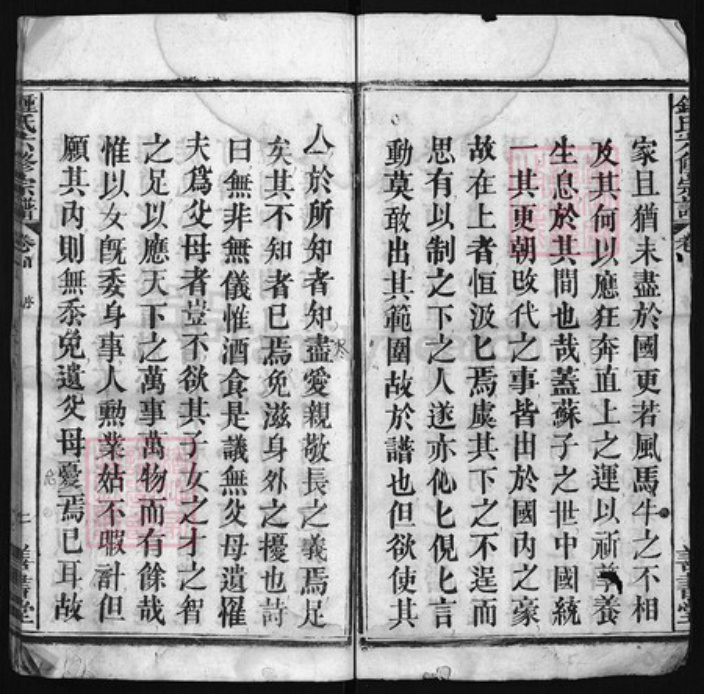 家且猶未盡於國更若風馬牛之不相
及其何以應狂奔直上之運以薪尊養
生息於其間也哉蓋蘇子之世中國統
一其更朝改代之事皆出於國內之豪
故在上者恒汲匕焉虞其下之不逞而
思有以制之下之人遂亦他匕俔匕言
動莫敢出其範圍故於譜也但欲使其
人於所知者知盡愛親敬長之義焉足
矣其不知者已焉免滋身外之擾也詩
曰無非無儀惟酒食是議無父母遺罹
夫爲父母者豈不欲其子女之才之智
之足以應天下之萬事萬物而有餘哉
惟以女既委身事人勲業姑不暇計但
願其內則無忝免遺父母憂焉已耳故
鍾氏六修宗譜
卷首
序
二
善書堂